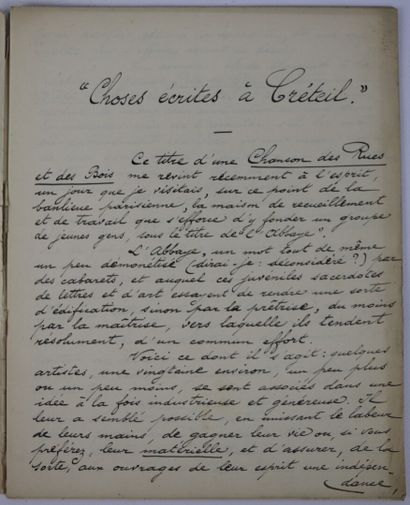 "Choses écrites à Créteil."
Ce titre d'une Chanson des Rues
et des Bois me revint récemment à l'esprit,
un jour que je visitais, sur ce point de la
banlieue parisienne, la maison de recueillement
et de travail que s'efforce d'y fonder un groupe
de jeunes gens, sous le titre de "L'Abbaye".
L'Abbaye, un mot tout de même
un peu démonétisé (dirai-je: déconsidéré?) par
des cabarets, et auquel ces juvéniles sacerdotes
de lettres et d'art essayent de rendre une sorte
d'édification, sinon par la prêtrise, du moins
par la maîtrise, vers laquelle ils tendent
résolument, d'un commun effort.
Voici ce dont il s'agit: quelques
artistes, une vingtaine environ, un peu plus
ou un peu moins, se sont associés dans une
idée à la fois industrieuse et généreuse. Il
leur a semblé possible, en unissant le labeur
de leurs mains, de gagner leur vie ou, si vous
préférez, leur matérielle, et d'assurer, de la
sorte, aux ouvrages de leur esprit une indépen-
dance,